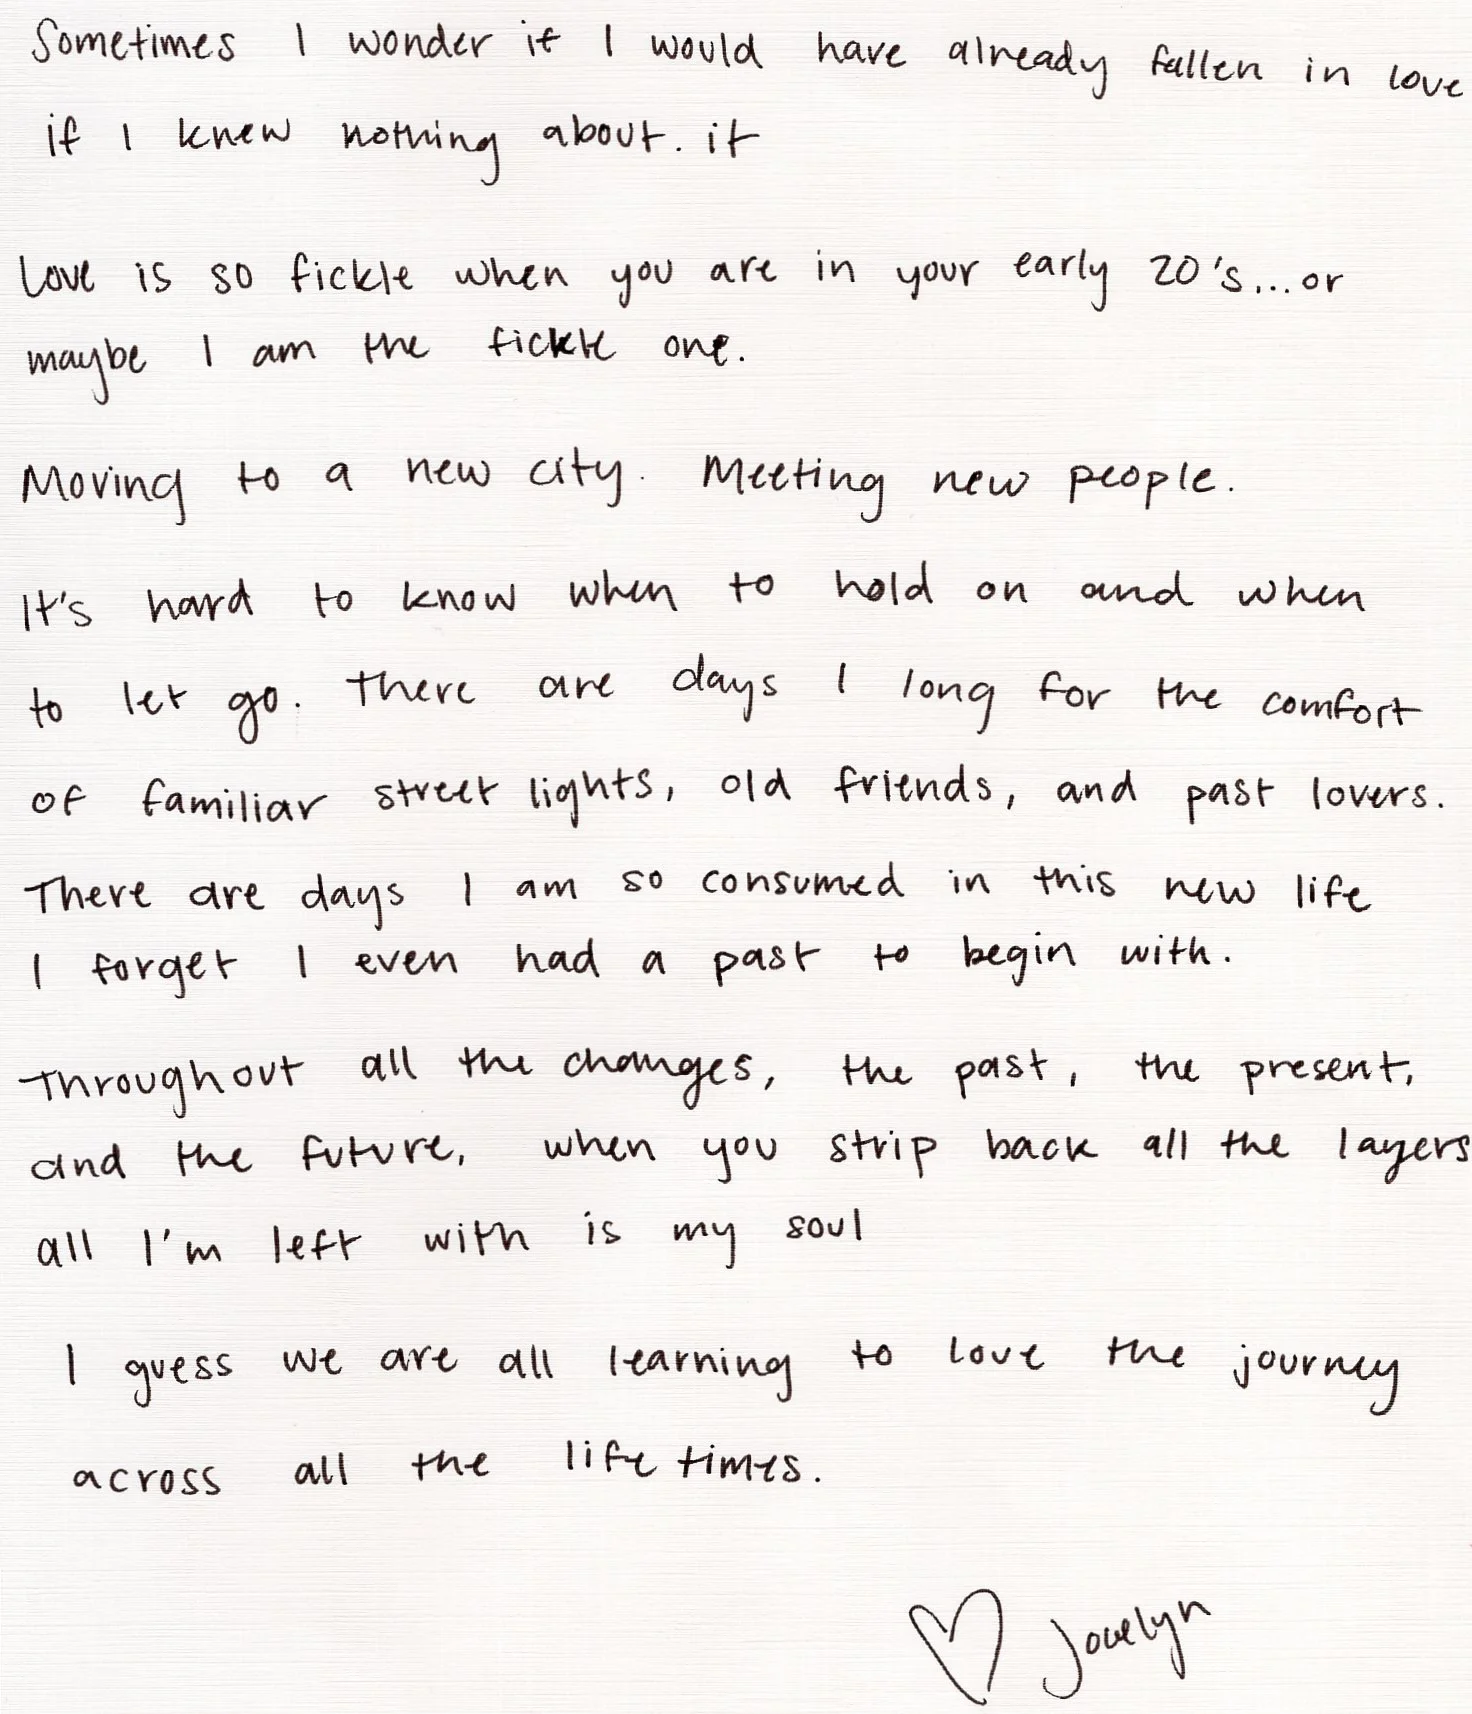 Sometimes I wonder if I would have already fallen in love
if I knew nothing about. it
Love is so fickle when you are in your early 20's...or
maybe I am the fickle one.
Moving to a new city. Meeting new people.
It's hard to know when to hold on and when
to let go. There are days I long for the comfort
of familiar street lights, old friends, and past lovers.
There are days I am so consumed in this new life
I forget I even had a past to begin with.
Throughout all the changes, the past, the present,
and the future, when you strip back all the layers
all I'm left with is my soul
I guess we are all learning to love the journey
across all the life times.
♡ Jocelyn